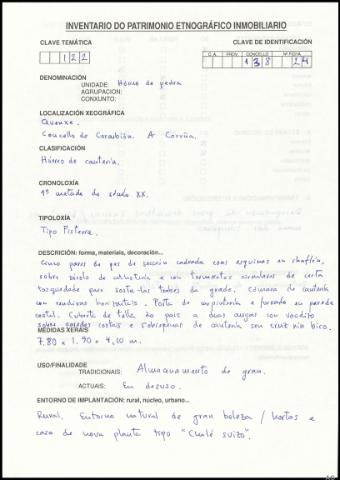 INVENTARIO DO PATRIMONIO ETNOGRÁFICO INMOBILIARIO
CLAVE TEMÁTICA
CLAVE DE IDENTIFICACIÓN
1 2 2
C.A. PROV. CONCELLO Nº FICHA
1 3 8 24
DENOMINACIÓN
UNIDADE: Hórreo de pedra
AGRUPACION:
CONXUNTO:
LOCALIZACIÓN XEOGRÁFICA
Quenxe.
Concello de Corcubión. A Coruña.
CLASIFICACIÓN
Hórreo de cantería.
CRONOLOXÍA
1ª metade do século XX.
TIPOLOXÍA
Tipo Fisterra.
DESCRICIÓN: forma, materiais, decoración...
pares de pes de sección cadrada coas esquinas en chaflán,
sobre de e con tornarratos circulares de certa
tosquedade para soste-las trabes da grade. Cámara de cantería
con rendixas horizontais. Porta de e furada na parede
costal. Cuberta de tella do país a dúas augas con voadizo
sobre paredes costais e sobrepenas de cantería sen cruz nin bico.
MEDIDAS XERAIS
7,80 x 1,90 x 4,00 m.
USO/FINALIDADE
TRADICIONAIS: Almacenamento de gran.
ACTUAIS: En desuso.
ENTORNO DE IMPLANTACIÓN: rural, núcleo, urbano...
Rural. Entorno natural de gran beleza / hortas e
casa de nova planta tipo "Chalé suizo".